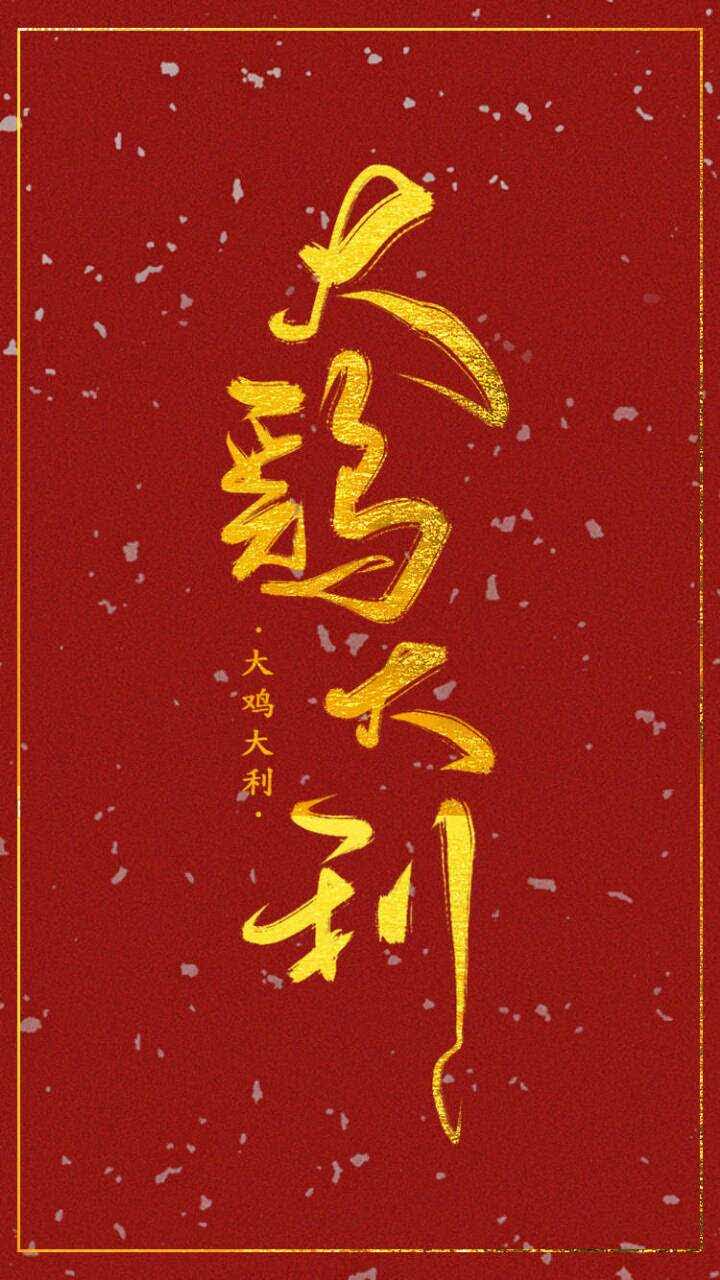 大鷄大利
·大鸡大利·